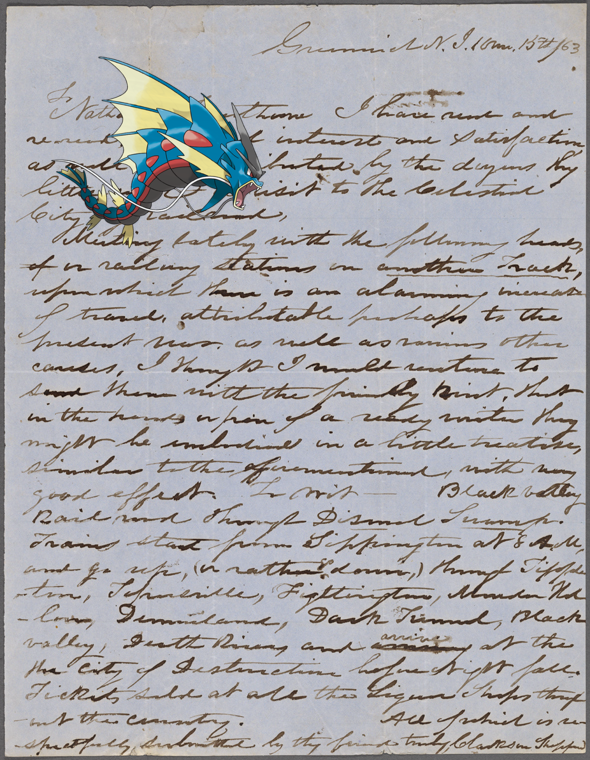 Greenwich N. J. 10 mo. 15th/63
I have read and
interest and satisfaction
by the dozens thy
visit to the Celestial
City
Meeting lately with the following heads,
or railway stations on another Track,
upon which there is an alarming increase
of travel, attributable perhaps to the
present war. as well as various other
causes, I thought I would venture to
send them with the friendly hint, that
in the hands or pen of a ready writer they
might be embodied in a little treatise,
similar to the aforementioned, with very
good effect. To wit — Black valley
Rail road through Dismal Swamp.
Trains start from Sippington at A.M.,
and go up, (or rather down,) through Tippler
-ton, Toperville, Fightington, Murder Hol
-low, Demonland, Dark Tunnel, Black
valley, Death River, and arrive at the
the City of Destruction before Night fall.
Tickets sold at all the Liquor Shops through
-out the country. All which is re-
-spectfully submitted by thy friend truly Clarkson